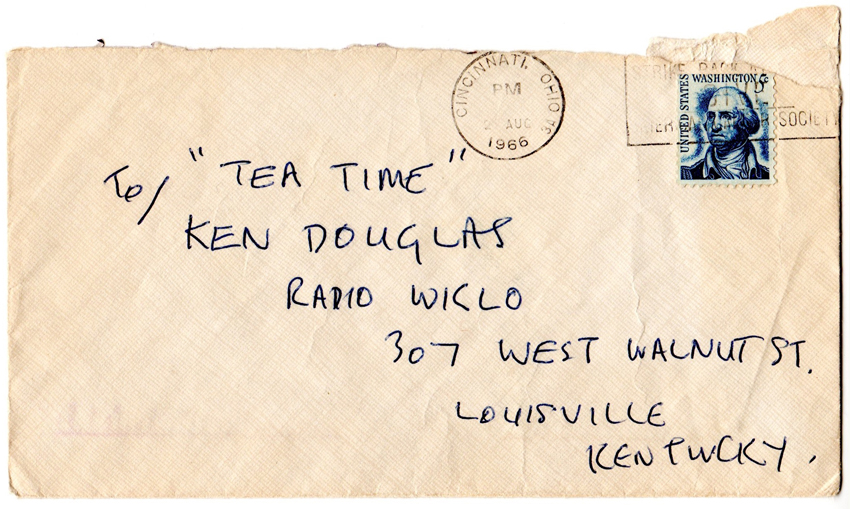 CINCINNATI, OHIO
PM
AUG
1966
STRIKE BACK
SOCIETY
UNITED STATES
WASHINGTON 5¢
To/ "TEA TIME"
KEN DOUGLAS
RADIO WKLO
307 WEST WALNUT ST.
LOUISVILLE
KENTUCKY.